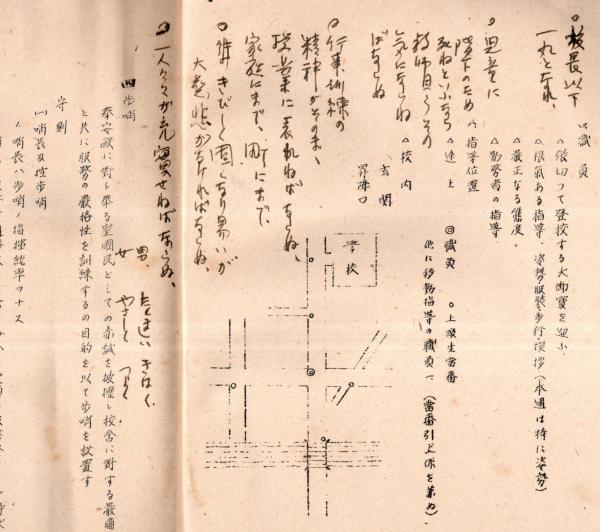 ○校長以下
一丸となれ、
○児童に
陛下のため
死ねといふなら
教師自らその
気にならね
ばならぬ
○行事訓練の
精神がその末、
授業に表れねばならぬ、
家庭にまで、町にまで、
○躾 きびしく固くなり易いが
大慈悲がなければならぬ、
○一人々々が充実せねばならぬ、
男、たくましい きはく
女 やさしく つよく
□職員
△張切つて登校する大御宝を迎ふ
△根気ある指導、姿勢服装歩行挨拶(本週は特に姿勢)
△厳正なる態度。
△勤務者の指導
◇指導位置
△途上 ◎職員 ○上級生当番
他に移動指導の職員一(当番引上係を兼ぬ)
△校内
玄関
昇降口
学校
四 歩哨
奉安殿に対し奉る皇国民としての赤誠を披瀝し校舎に対する厳粛
と共に服務の厳格性を訓練するの目的を以て歩哨を設置す
守則
(一)哨長及控歩哨
イ哨長ハ歩哨ノ指揮統率ヲナス